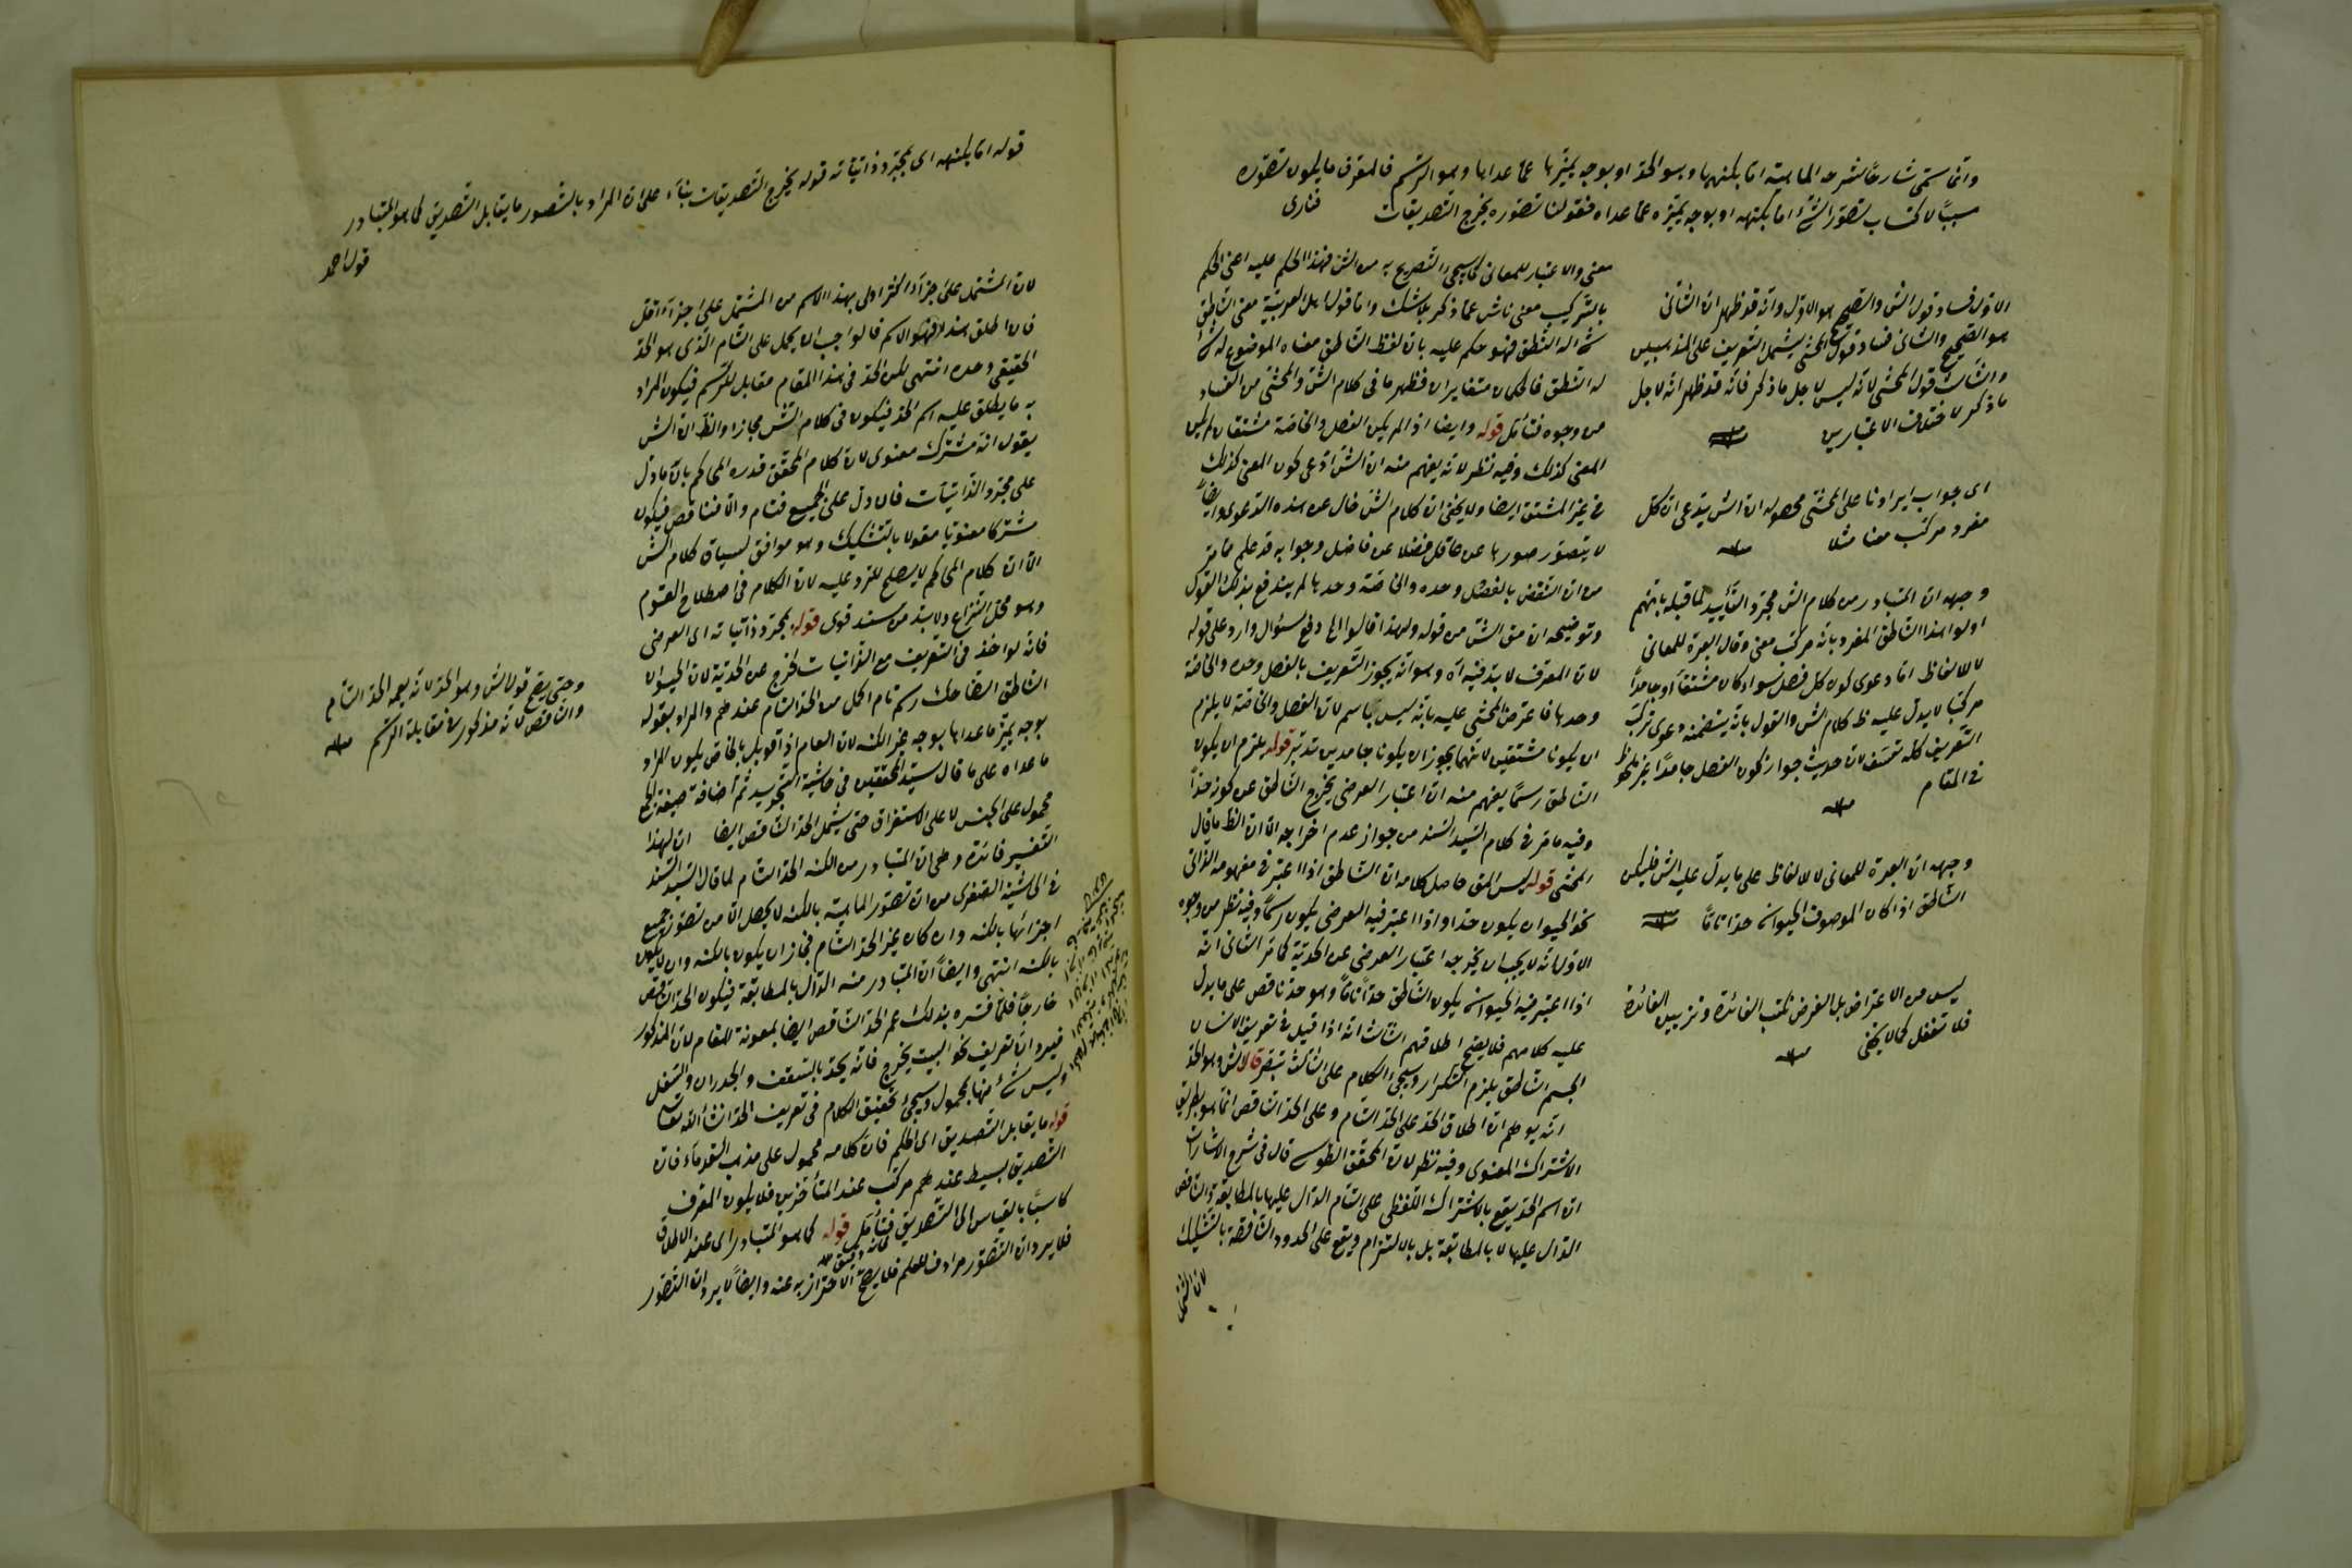 وانما سمى شارحا لشرحه الماهية اما بكنهها وهو الحد او بوجه يميزها عما عداها وهو الرسم فالمعرف ما يكون تصوره
سببا لاكتساب تصور الشئ اما بكنهه او بوجه يميزه عما عداه فقولنا تصوره يخرج التصديقات فنارى
الاول فساد قول الش والصحيح هو الاول وانه قد ظهر ان الثانى
هو الصحيح والثانى فساد قول المحشى يشمل التعريف على المذهبين
والثالث قول المحشى لانه ليس لاجل ما ذكر فانه قد ظهر انه لاجل
ما ذكر لاختلاف الاعتبارين
اى جواب ايرادنا على المحشى محصوله ان الش يدعى ان كل
مفرد مركب معنا مثلا
وجهه ان المتبادر من كلام الش مجرد التأييد لما قبله بانهم
اولوا هذا الناطق المفرد بانه مركب معنى وقال العبرة للمعانى
لا للالفاظ اما دعوى كون كل فصل سواء كان مشتقا او جامدا
مركبا لا يدل عليه ظ كلام الش والقول بانه يتضمنه دعوى تركب
التعريف كله تعسف لان حديث جواز كون الفصل جامدا غير ملحوظ
فى المقام
وجهه ان العبرة للمعانى لا للالفاظ على ما يدل عليه الش فليكن
الناطق اذا كان الموصوف الحيوان حدا تاما
ليس من الاعتراض بل الغرض ... الفائدة وتزييل الفائدة
فلا تغفل كما لا يخفى
معنى والاعتبار للمعانى كما سيجئ التصريح به من الش فهذا الحكم عليه اعنى الحكم
بالتركيب معنى ناش عما ذكر بلا شك واما قول اهل العربية معنى الناطق
شئ له النطق فهو حكم عليه بان لفظ الناطق معناه الموضوع له شئ
له النطق فالحكمان متغايران فظهر ما فى كلام الش والمحشى من الفساد
من وجوه فتأمل قوله وايضا اذا لم يكن الفصل والخاصة مشتقان لم يكن
المعنى كذلك وفيه نظر لانه يفهم منه ان الش ادعى كون المعنى كذلك
فى غير المشتق ايضا ولا يخفى ان كلام الش خال عن هذه الدعوى وايضا
لا يتصور صدورها عن عاقل فضلا عن فاضل وجوابه قد علم مما مر
من ان النقض بالفصل وحده والخاصة وحدها لم يندفع بذلك القول
وتوضيحه ان مق الش من قوله ولهذا قالوا الخ دفع سؤال وارد على قوله
لان المعرف لا بد فيه اه وهو انه يجوز التعريف بالفصل وحده والخاصة
وحدها فاعترض المحشى عليه بانه ليس بحاسم لان الفصل والخاصة لا يلزم
ان يكونا مشتقين لانهما يجوز ان يكونا جامدين تدبر قوله يلزم ان يكون
الناطق رسما يفهم منه ان اعتبار العرضى يخرج الناطق عن كونه حدا
وفيه ما مر فى كلام السيد السند من جواز عدم اخراجه الا ان الظ ما قال
المحشى قوله ليس المق حاصل كلامه ان الناطق اذا اعتبر فى مفهومه الذاتى
نحو الحيوان يكون حدا واذا اعتبر فيه العرضى يكون رسما وفيه نظر من وجوه
الاول انه لا يجب ان يخرجه اعتبار العرضى عن الحدية كما مر الثانى انه
اذا اعتبر فيه الحيوان يكون الناطق حدا تاما وهو حد ناقص على ما يدل
عليه كلامهم فلا يصح اطلاقهم الثالث انه اذا قيل فى تعريف الانسان
الجسم الناطق يلزم التكرار وسيجئ الكلام على الثالث تبصر قال الش وهو الحد
انه يوهم ان اطلاق الحد على الحد التام وعلى الحد الناقص انما هو بطريق
الاشتراك المعنوى وفيه نظر لان المحقق الطوسى قال فى شرح الاشارات
ان اسم الحد يقع بالاشتراك اللفظى على التام الدال عليها بالمطابقة والناقص
الدال عليها لا بالمطابقة بل بالالتزام ويقع على الحدود الناقصة بالتشكيك
لان المشتمل
قوله اما بكنهه اى بمجرد ذاتياته قوله يخرج التصديقات بناء على ان المراد بالتصور ما يقابل التصديق كما هو المتبادر
قول احمد
لان المشتمل على اجزاء اكثر اولى بهذا الاسم من المشتمل على اجزاء اقل
فان اطلق هذا الاسم فالواجب ان يحمل على التام الذى هو الحد
الحقيقى وحده انتهى لكن الحد فى هذا المقام مقابل للرسم فيكون المراد
به ما يطلق عليه اسم الحد فيكون فى كلام الش مجازا والظ ان الش
يقول انه مشترك معنوى لان كلام المحقق قدره المحاكم بان ما دل
على مجرد الذاتيات فان دل على الجميع فتام والا فناقص فيكون
مشتركا معنويا مقولا بالتشكيك وهو موافق لسياق كلام الش
الا ان كلام المحاكم لا يصلح للرد عليه لان الكلام فى اصطلاح القوم
وهو محل النزاع ولا بد من سند قوى قوله بمجرد ذاتياته اى العرضى
فانه لو اخذ فى التعريف مع الذاتيات لخرج عن الحدية لان الحيوان
الناطق الضاحك رسم تام اكمل من الحد التام عندهم والمراد بقوله
بوجه يميز ما عداها بوجه غير الكنه لان العام اذا قوبل بالخاص يكون المراد
ما عداه على ما قال سيد المحققين فى حاشية التجريد ثم اضافة صيغة الجمع
محمول على الجنس لا على الاستغراق حتى يشمل الحد الناقص ايضا ان لهذا
التفسير فائدة وهى ان المتبادر من الكنه الحد التام لما قال السيد السند
فى الحاشية الصغرى من ان تصور الماهية بالكنه لا يحصل الا من تصور جميع
اجزائها بالكنه وان كان غير الحد التام فجاز ان يكون بالكنه وان لا يكون
بالكنه انتهى وايضا ان المتبادر منه الدال بالمطابقة فيكون الحد الناقص
خارجا فلما فسره بذلك عم الحد الناقص ايضا بمعونة المقام لان المذكور
فيرد ان تعريف نحو البيت يخرج فانه يحد بالسقف والجدران والسفل
وليس شئ منها بمحمول وسيجئ تحقيق الكلام فى تعريف الحد ان شاء الله تعالى
قوله ما يقابل التصديق اى الحكم فان كلامه محمول على مذهب القدماء فان
التصديق بسيط عندهم مركب عند المتأخرين فلا يكون المعرف
كاسبا بالقياس الى التصديق فتأمل قوله كما هو المتبادر اى عند الاطلاق
فلا يرد ان التصور مرادف للعلم فلا يصح الاحتراز به عنه وايضا لا يرد ان التصور
وحتى يصح قول الش وهو الحد لانه يعم الحد التام
والناقص لانه مذكور فى مقابلة الرسم